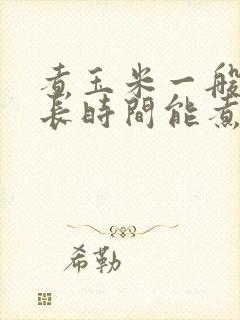 煮玉米一般
長時間能煮
希勒